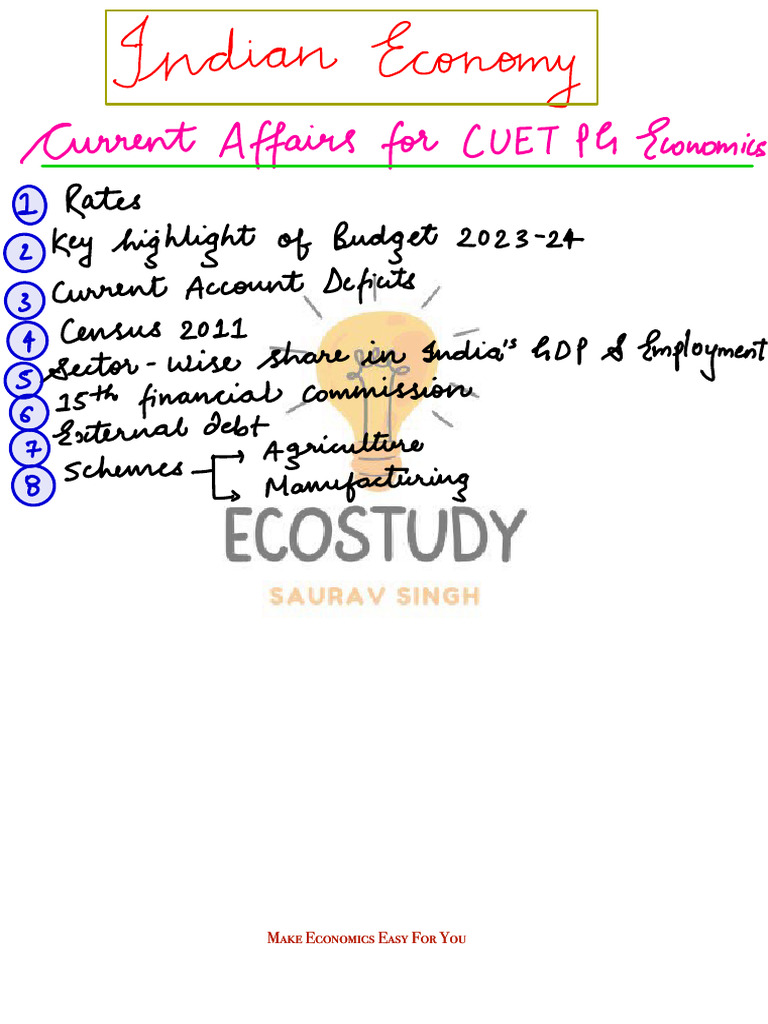 Indian Economy
Current Affairs for CUET PG Economics
1 Rates
2 Key highlight of Budget 2023-24
3 Current Account Deficits
4 Census 2011
5 Sector-wise share in India's GDP & Employment
6 15th financial commission
7 External Debt
8 Schemes Agriculture
Manufacturing
ECOSTUDY
SAURAV SINGH
MAKE ECONOMICS EASY FOR YOU